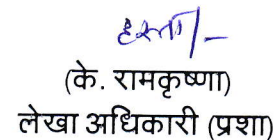 हस्ता/-
(के. रामकृष्णा)
लेखा अधिकारी (प्रशा)